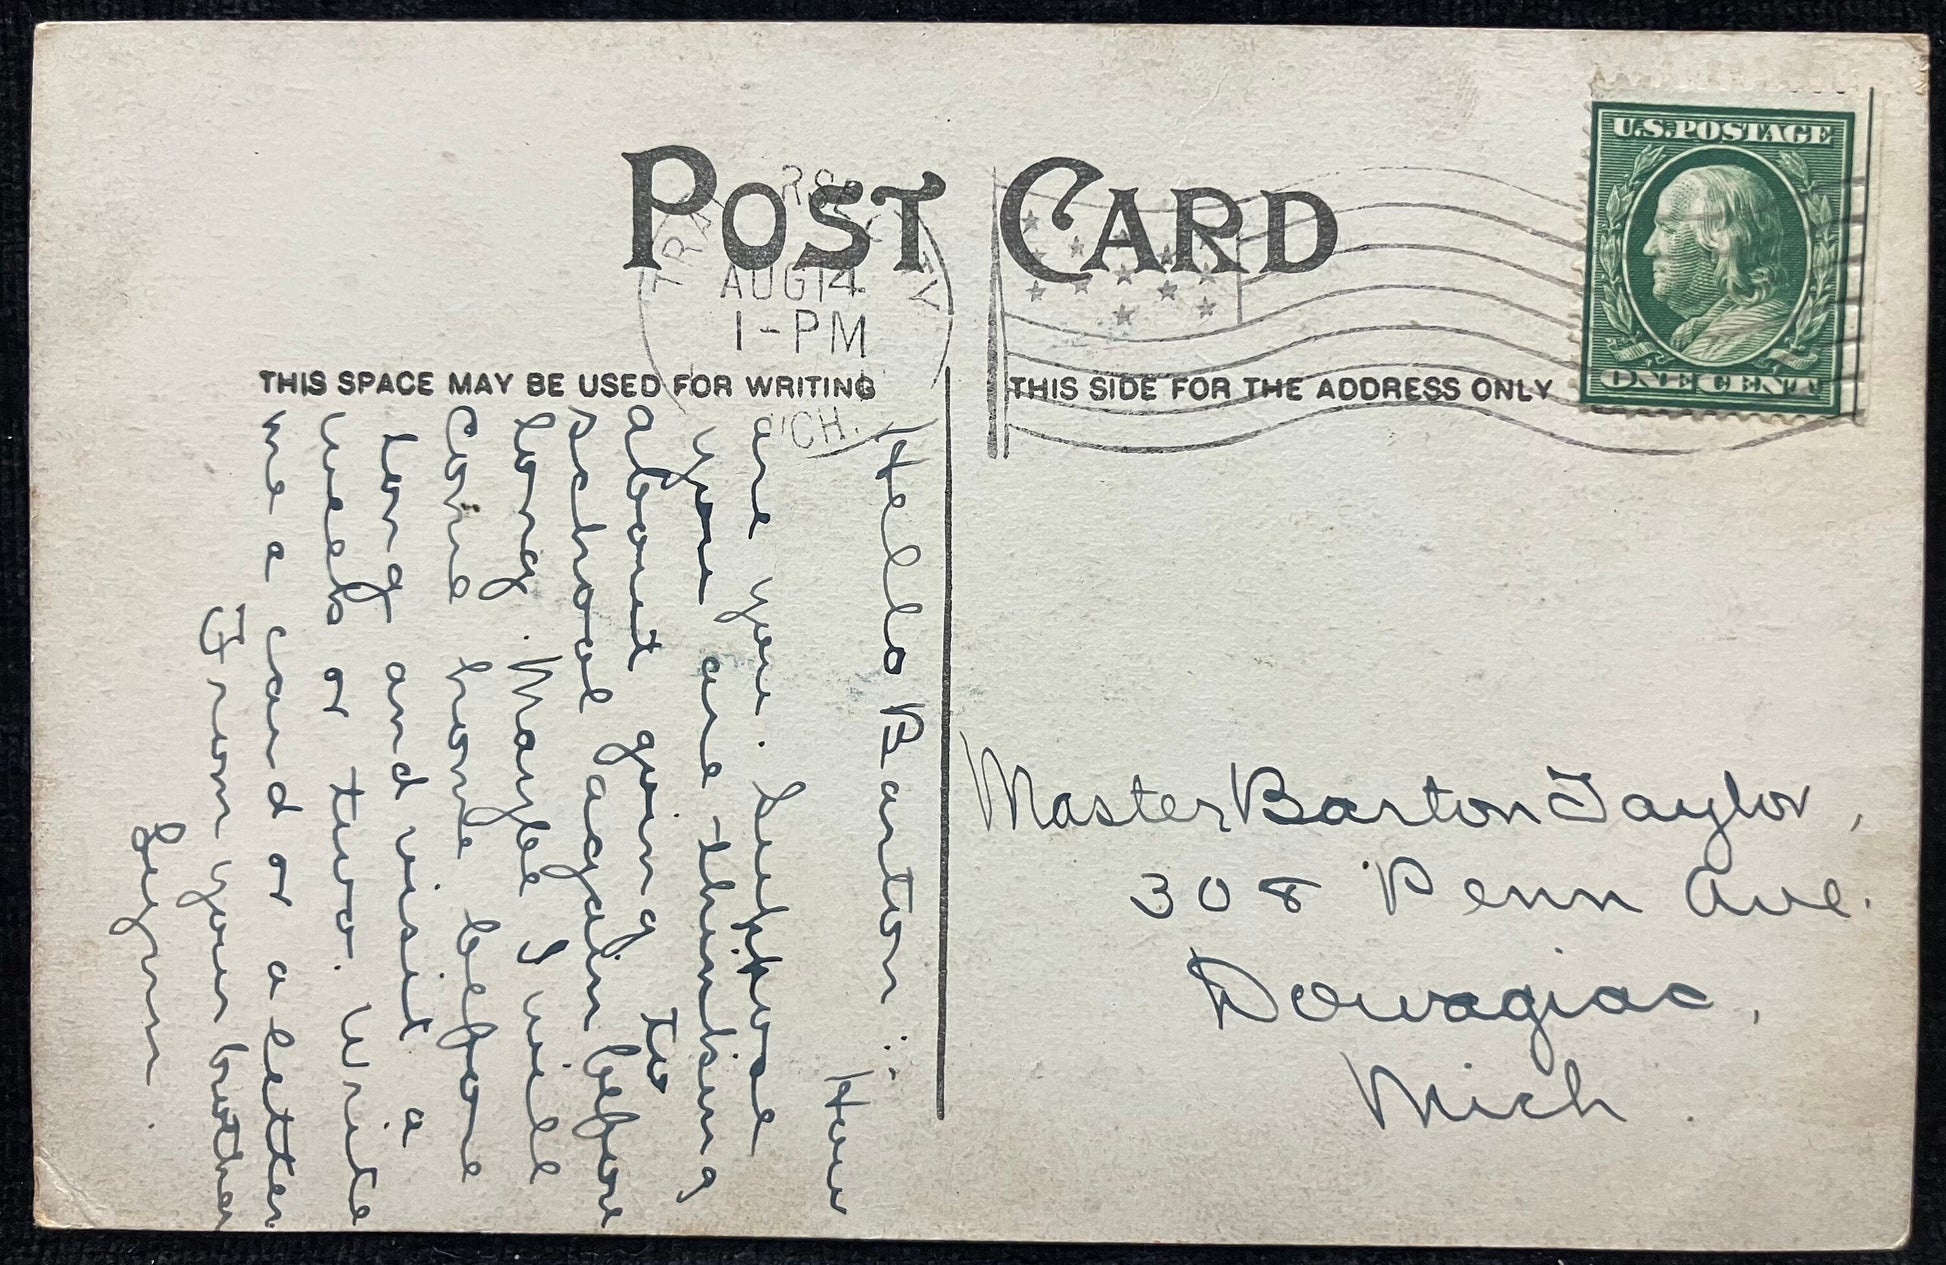 POST CARD
AUG 14
1-PM
THIS SPACE MAY BE USED FOR WRITING
THIS SIDE FOR THE ADDRESS ONLY
U.S. POSTAGE
ONE CENT
Hello Barton:
How
are you. Suppose
you are thinking
about going to
school again before
long. Maybe I will
come home before
long and visit a
week or two. Write
me a card or a letter.
From your brother
Master Barton Taylor,
308 Penn Ave.
Dowagiac,
Mich.